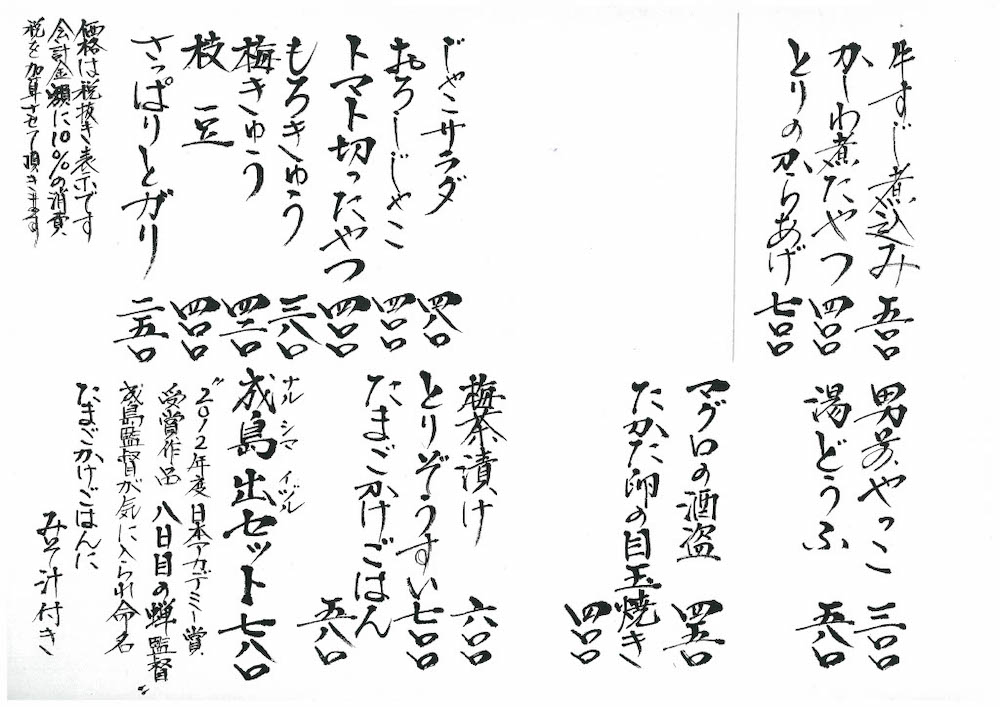 牛すじ煮込み 五〇〇
かしわ煮たやつ 四〇〇
とりのからあげ 七〇〇
じゃこサラダ 四八〇
おろしじゃこ 四〇〇
トマト切ったやつ 四〇〇
もろきゅう 三八〇
梅きゅう 四二〇
枝豆 四〇〇
さっぱりとガリ 二五〇
価格は税抜き表示です
会計金額に10%の消費
税を加算させて頂きます
男前やっこ 三〇〇
湯どうふ 五八〇
マグロの酒盗 四五〇
たかた卵の目玉焼き 四〇〇
梅茶漬け 六〇〇
とりぞうすい 七〇〇
たまごかけごはん 五八〇
ナルシマイヅル
成島出セット 七八〇
"2012年度日本アカデミー賞
受賞作品 八日目の蝉監督"
成島監督が気に入られ命名
たまごかけごはんに
みそ汁付き